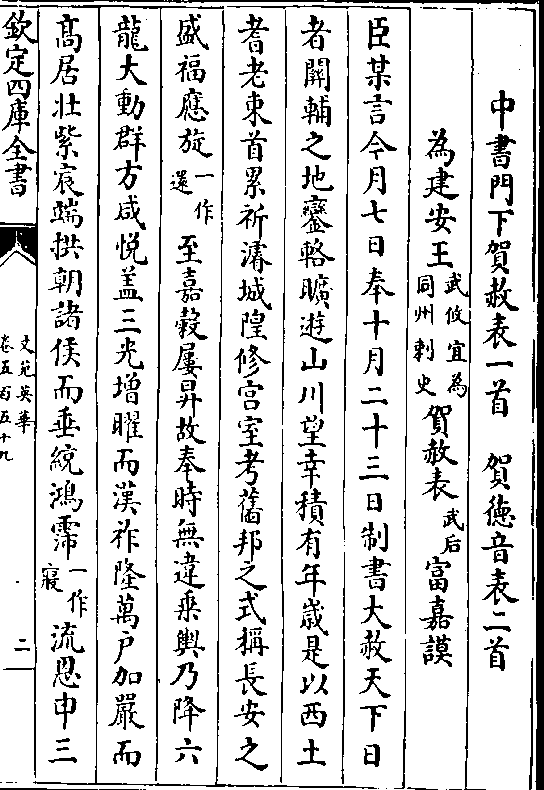 中書門下賀赦表一首　賀徳音表二首
為建安王武攸宜為同州刺史賀赦表武后富嘉謨
臣某言今月七日奉十月二十三日制書大赦天下日
者關輔之地鑾輅曠遊山川望幸積有年歲是以西土
耆老東首累祈濬城隍修宫室考舊邦之式稱長安之
盛福應旋一作還至嘉穀屢昇故奉時無違乗輿乃降六
龍大動群方咸悦盖三光增曜而漢祚隆萬戸加嚴而
髙居壮紫宸端拱朝諸侯而垂統鴻霈一作寖流恩申三
欽定四庫全書
文苑英華
卷五百五十九
二